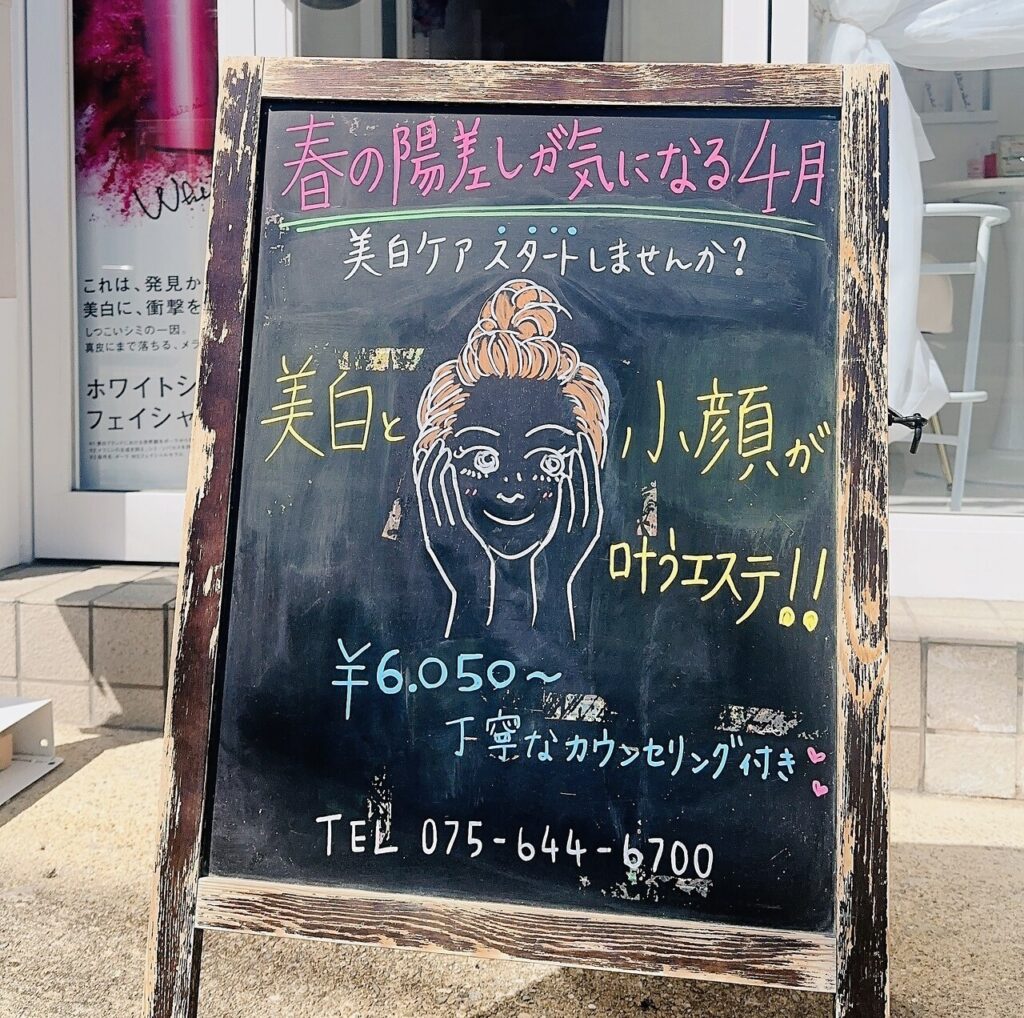 春の陽差しが気になる4月
美白ケアスタートしませんか?
美白と
小顔が
叶うエステ!!
¥6.050~
丁寧なカウンセリング付き
TEL 075-644-6700
これは、発見か
美白に、衝撃を
しつこいシミの一因。
真皮にまで落ちる、メラ
ホワイトシ
フェイシャ